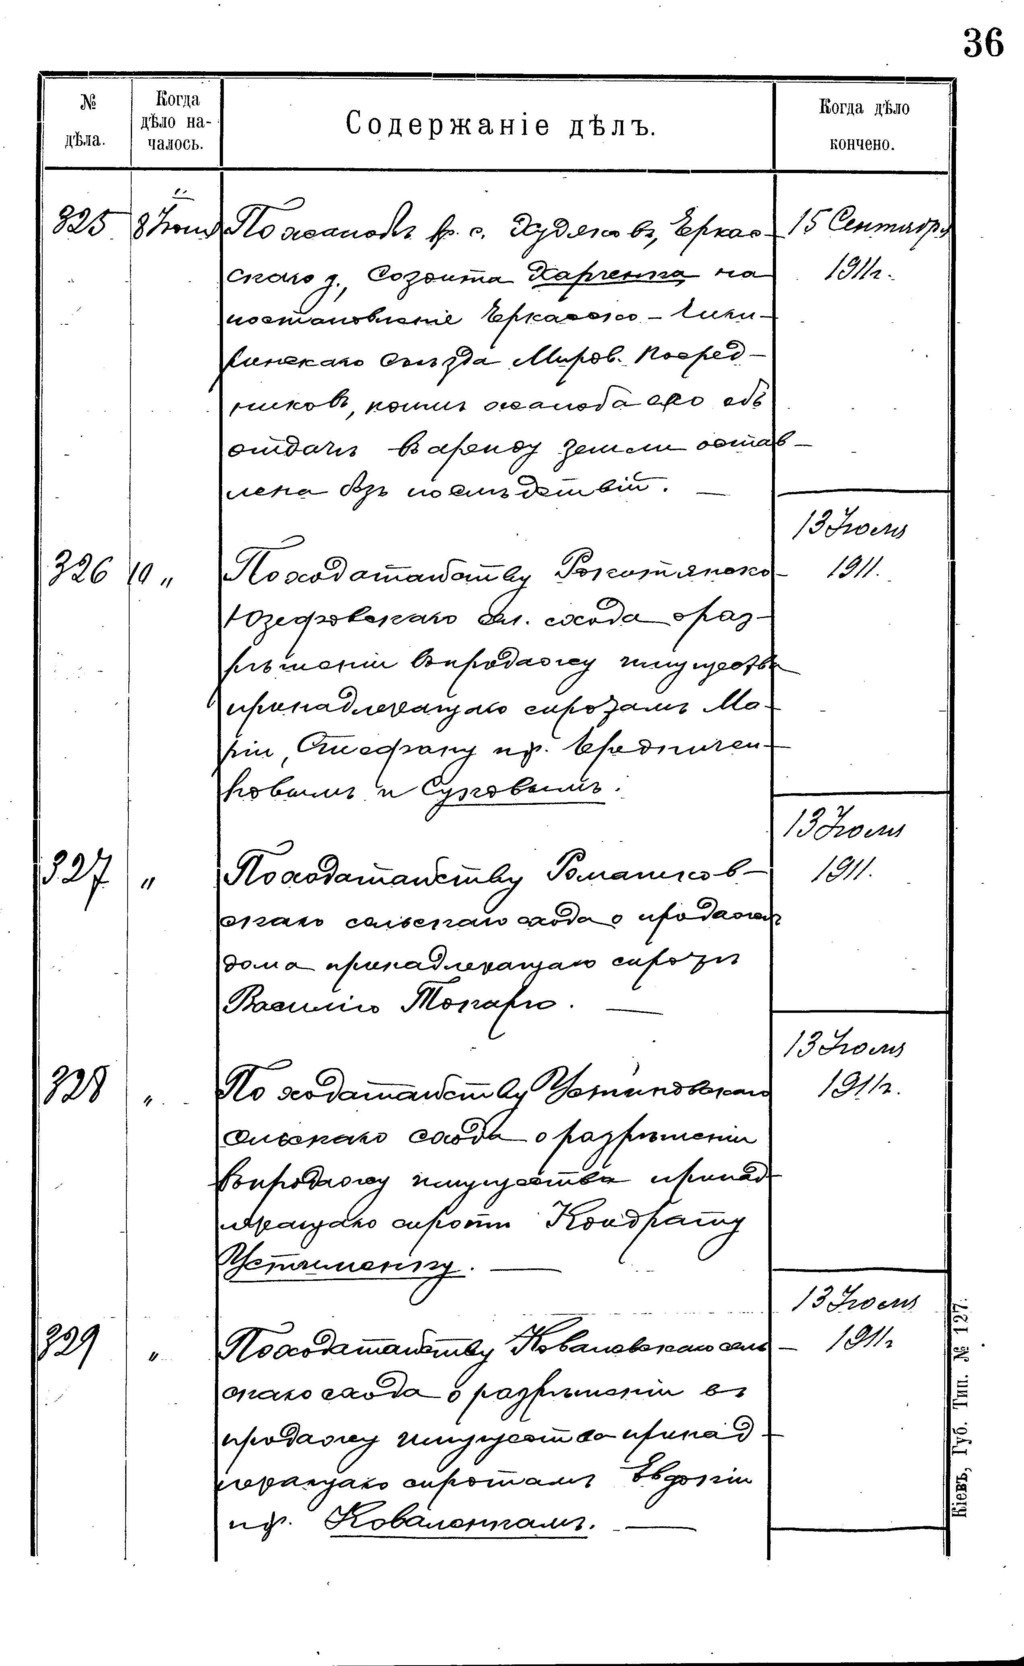 36
№ дѣла.
Когда дѣло началось.
Содержаніе дѣлъ.
Когда дѣло кончено.
325
8 Іюня
По жалобѣ кр. с. Худяковъ, Черкас-
15 Сентября
скаго у., Созонта Харченка на
1911 г.
постановленіе Черкасско-Чиги-
ринскаго Съѣзда Миров. Посред-
никовъ, коимъ жалоба его объ
отдачѣ въ аренду земли остав-
лена безъ послѣдствій.
13 Іюля
326
10 "
По ходатайству Рокитянско-
1911.
Юзефовскаго сел. схода о раз-
рѣшеніи въ продажу имущества
принадлежащаго сиротамъ Ма-
ріи, Стефану и др. Чередничен-
ковымъ и Суковымъ.
13 Іюля
327
"
По ходатайству Ромашков-
1911.
скаго сельскаго схода о продажѣ
дома принадлежащаго сиротѣ
Василію Токарю.
13 Іюля
328
"
По ходатайству Устиновскаго
1911 г.
сельскаго схода о разрѣшеніи
въ продажу имущества принад-
лежащаго сиротѣ Кондрату
Устименку.
13 Іюля
329
"
По ходатайству Ковалевскаго сель-
1911 г.
скаго схода о разрѣшеніи въ
продажу имущества принад-
лежащаго сиротамъ Евдокіи
и др. Коваленкамъ.
Кіевъ, Губ. Тип. № 127.